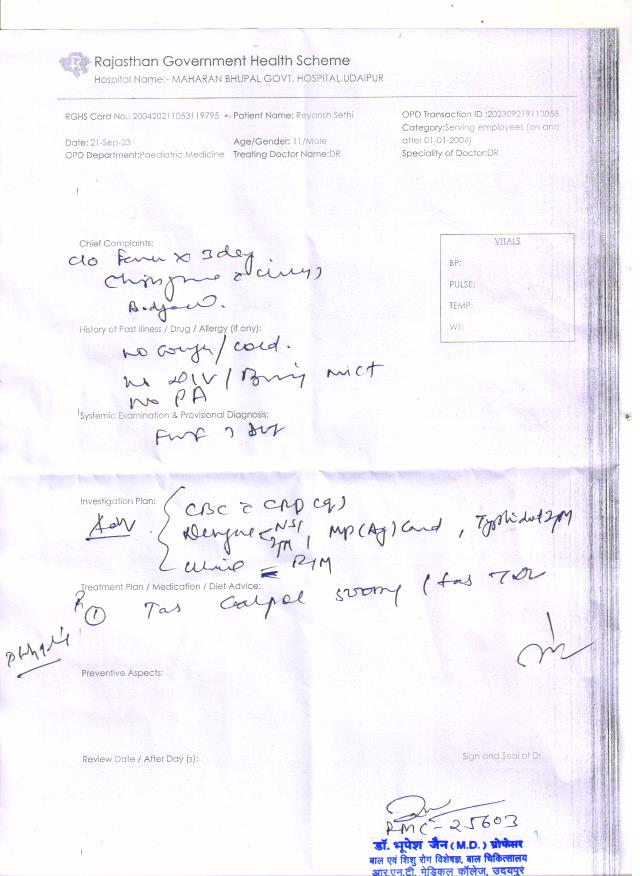 Rajasthan Government Health Scheme
Hospital Name:- MAHARAN BHUPAL GOVT. HOSPITAL,UDAIPUR
RGHS Card No.: 200420211053119795 Patient Name: Reyansh Sethi
OPD Transaction ID :202309219113058
Category:Serving employees (on and after 01-01-2004)
Date: 21-Sep-23 Age/Gender: 11/Male
OPD Department:Paediatric Medicine Treating Doctor Name:DR Speciality of Doctor:DR
Chief Complaints:
c/o Fever x 3 day
VITALS
BP:
PULSE:
TEMP:
WT:
History of Past illness / Drug / Allergy (if any):
no cough/cold.
no PA
Systemic Examination & Provisional Diagnosis:
Investigation Plan:
Adv
CBC
Dengue NS1 MP(Ag) Card, Typhidot IgM
R/M
Treatment Plan / Medication / Diet Advice:
① Tab Calpol 500mg
Preventive Aspects:
Review Date / After Day (s):
Sign and Seal of Dr.
RMC-25603
डॉ. भूपेश जैन (M.D.) प्रोफेसर
बाल एवं शिशु रोग विशेषज्ञ, बाल चिकित्सालय
आर.एन.टी. मेडिकल कॉलेज, उदयपुर